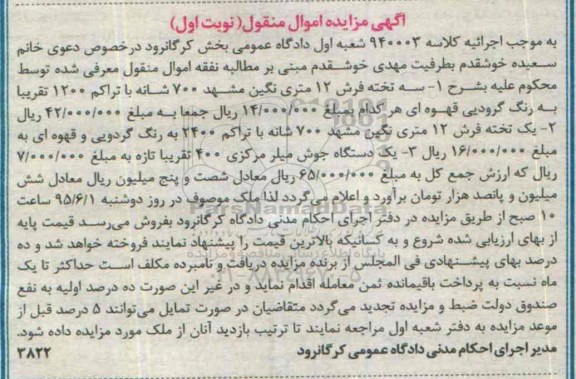 آگهی مزایده اموال منقول( نوبت اول)
به موجب اجرائیه کلاسه ۹۴۰۰۰۳ شعبه اول دادگاه عمومی بخش کرگانرود درخصوص دعوی خانم
سعیده خوشقدم بطرفیت مهدی خوشقدم مبنی بر مطالبه نفقه اموال منقول معرفی شده توسط
محکوم علیه بشرح ۱- سه تخته فرش ۱۲ متری نگین مشهد ۷۰۰ شانه با تراکم ۱۲۰۰ تقریبا
به رنگ گرودیی قهوه ای هر کدام مبلغ ۱۴/۰۰۰/۰۰۰ ریال جمعا به مبلغ ۴۲/۰۰۰/۰۰۰ ریال
۲- یک تخته فرش ۱۲ متری نگین مشهد ۷۰۰ شانه با تراکم ۲۴۰۰ به رنگ گردویی و قهوه ای به
مبلغ ۱۶/۰۰۰/۰۰۰ ریال ۳- یک دستگاه جوش میلر مرکزی ۴۰۰ تقریبا تازه به مبلغ ۷/۰۰۰/۰۰۰
ریال که ارزش جمع کل به مبلغ ۶۵/۰۰۰/۰۰۰ ریال معادل شصت و پنج میلیون ریال معادل شش
میلیون و پانصد هزار تومان برآورد و اعلام می‌گردد لذا ملک موصوف در روز دوشنبه ۹۵/۶/۱ ساعت
۱۰ صبح از طریق مزایده در دفتر اجرای احکام مدنی دادگاه کرگانرود بفروش می‌رسد قیمت پایه
از بهای ارزیابی شده شروع و به کسانیکه بالاترین قیمت را پیشنهاد نمایند فروخته خواهد شد و ده
درصد بهای پیشنهادی فی المجلس از برنده مزایده دریافت و نامبرده مکلف است حداکثر تا یک
ماه نسبت به پرداخت باقیمانده ثمن معامله اقدام نماید و در غیر این صورت ده درصد اولیه به نفع
صندوق دولت ضبط و مزایده تجدید می‌گردد متقاضیان در صورت تمایل می‌توانند ۵ درصد قبل از
موعد مزایده به دفتر شعبه اول مراجعه نمایند تا ترتیب بازدید آنان از ملک مورد مزایده داده شود.
مدیر اجرای احکام مدنی دادگاه عمومی کرگانرود ۳۸۲۲